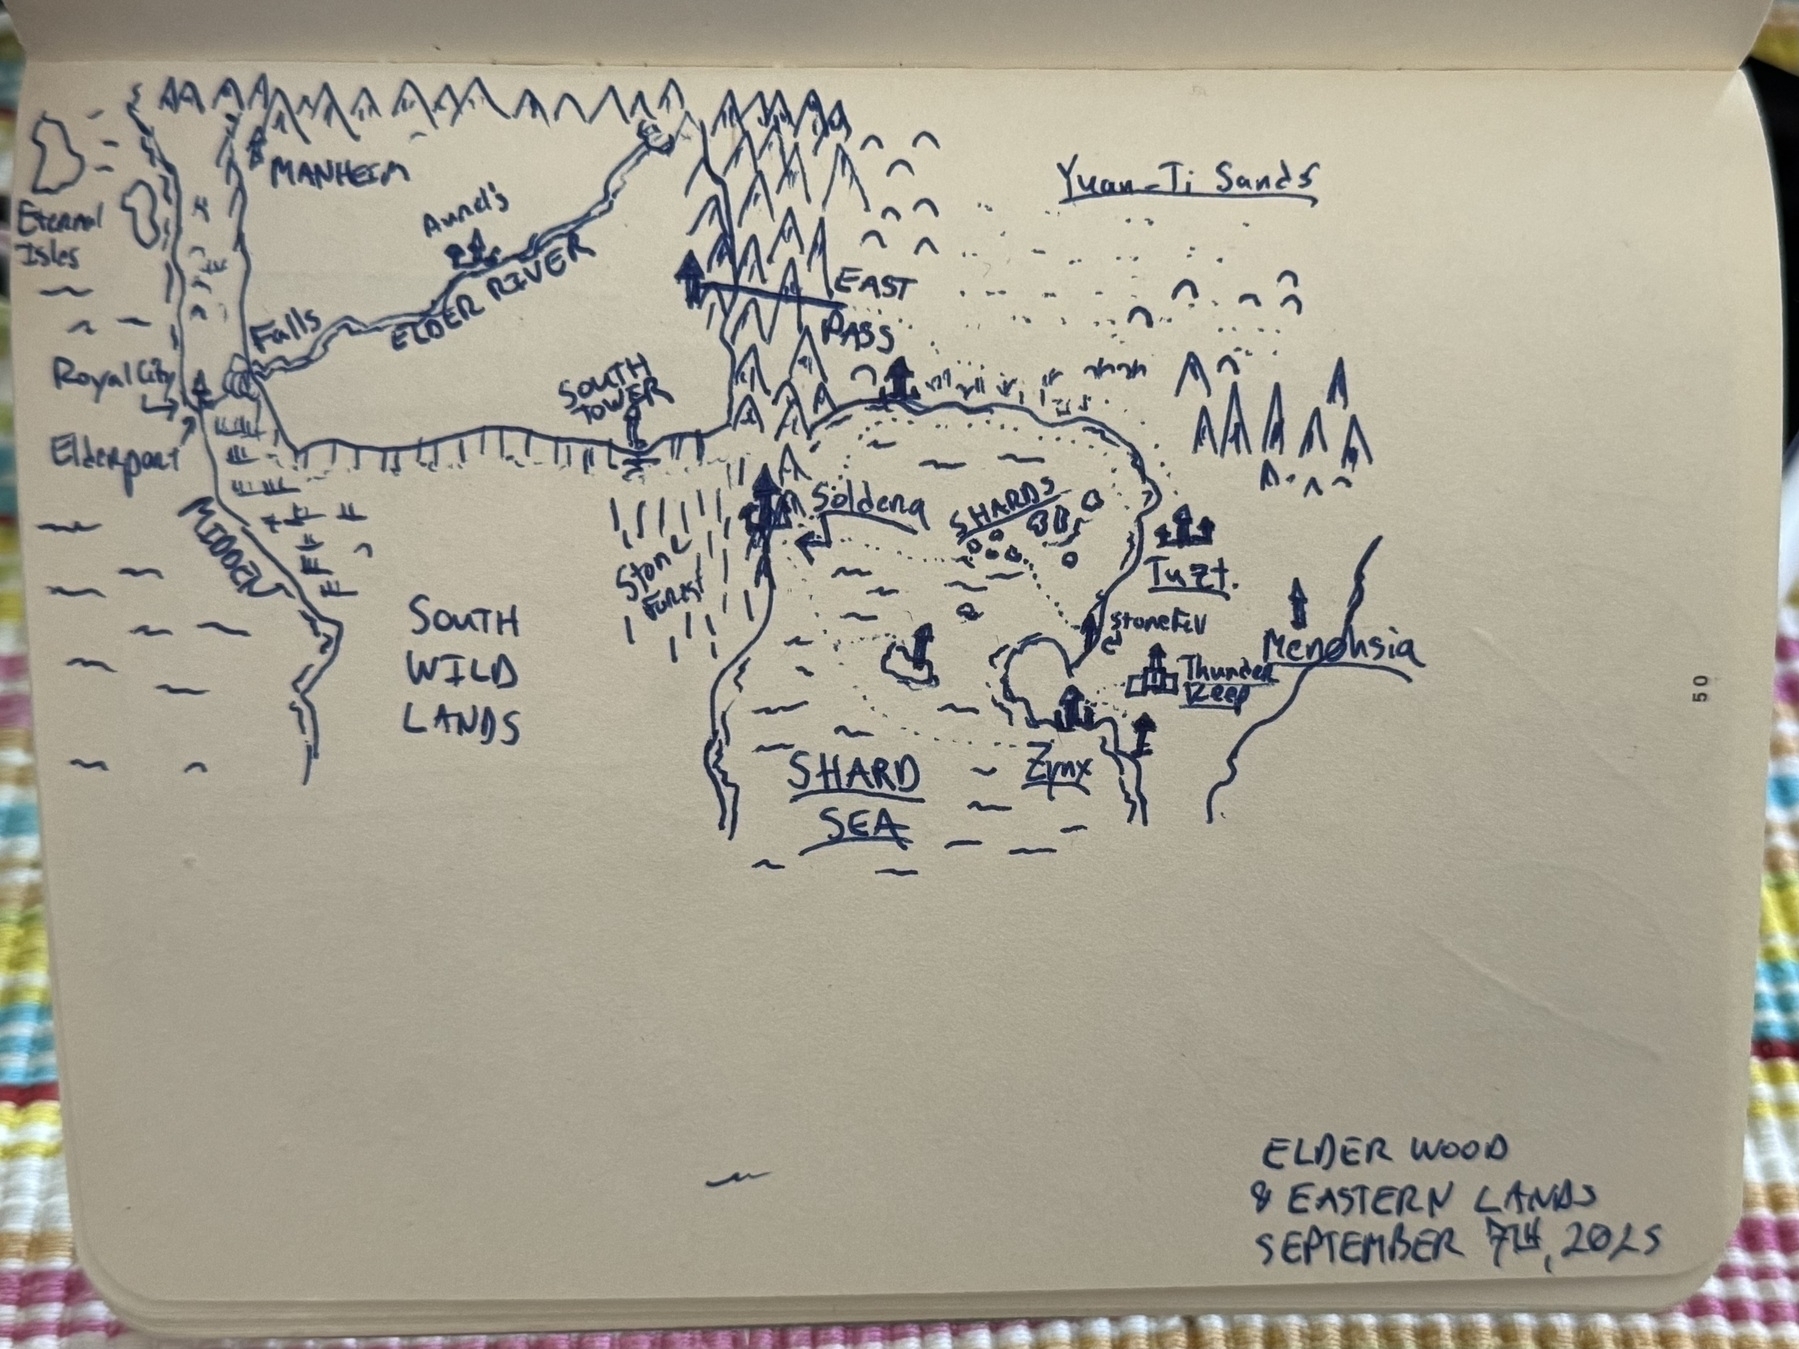 Yuan-Ti Sands
MANHEIM
Eternal
Isles
ELDER RIVER
EAST
PASS
Falls
Royal City
SOUTH
TOWER
Elderport
Soldena
SHARDS
Stone
Forest
Tuzt.
SOUTH
WILD
LANDS
Menohsia
Thunder
Keep
Zynx
SHARD
SEA
50
ELDER WOOD
& EASTERN LANDS
SEPTEMBER 7TH, 2025